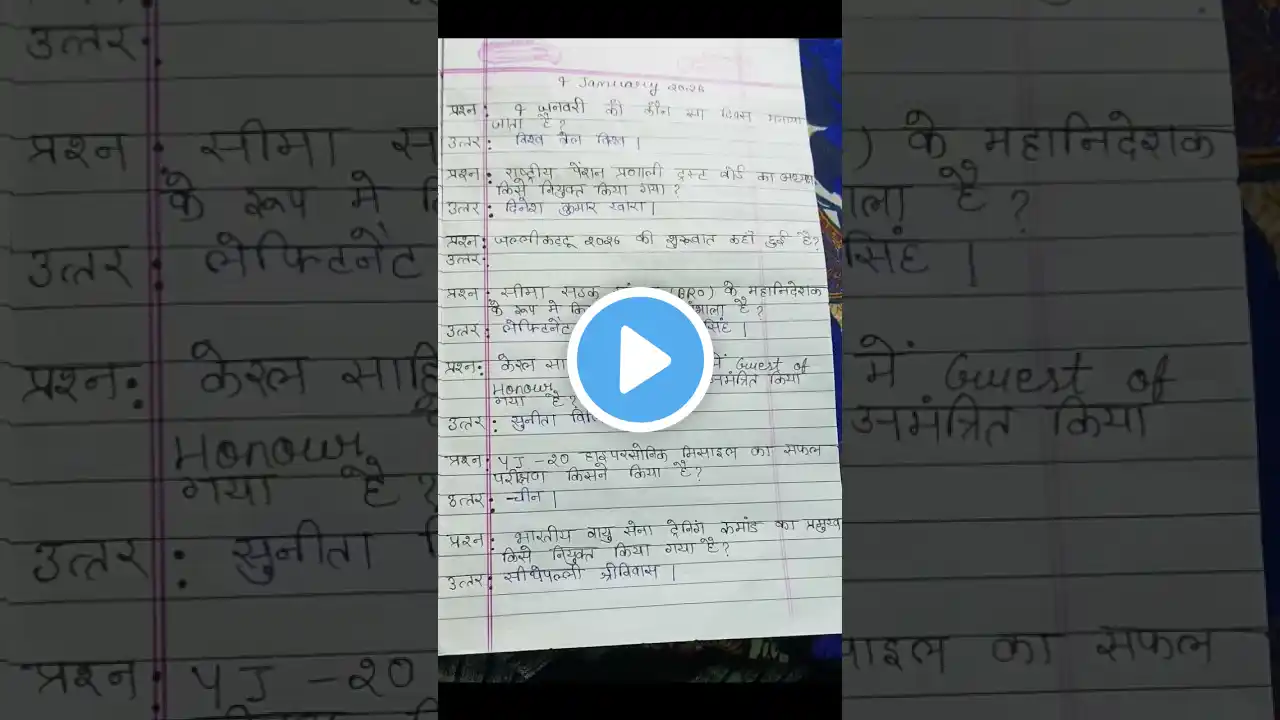 १ January २०२६
प्रश्न: १ जनवरी को कौन सा दिवस मनाया
जाता है?
उत्तर: विश्व ब्रेल दिवस।
प्रश्न: राष्ट्रीय पेंशन प्रणाली ट्रस्ट बोर्ड का अध्यक्ष
किसे नियुक्त किया गया?
उत्तर: दिनेश कुमार खारा।
प्रश्न: जल्लीकट्टू २०२६ की शुरुवात कहाँ हुई है?
उत्तर:
प्रश्न: सीमा सड़क (BRO) के महानिदेशक
के रूप में संभाला है?
उत्तर: लेफ्टिनेंट सिंह।
प्रश्न: केरल में Guest of
Honour आमंत्रित किया
गया है?
उत्तर: सुनीता
प्रश्न: YJ-२० हाइपरसोनिक मिसाइल का सफल
परीक्षण किसने किया है?
उत्तर: चीन।
प्रश्न: भारतीय वायु सेना ट्रेनिंग कमांड का प्रमुख
किसे नियुक्त किया गया है?
उत्तर: सीथेपल्ली श्रीनिवास।